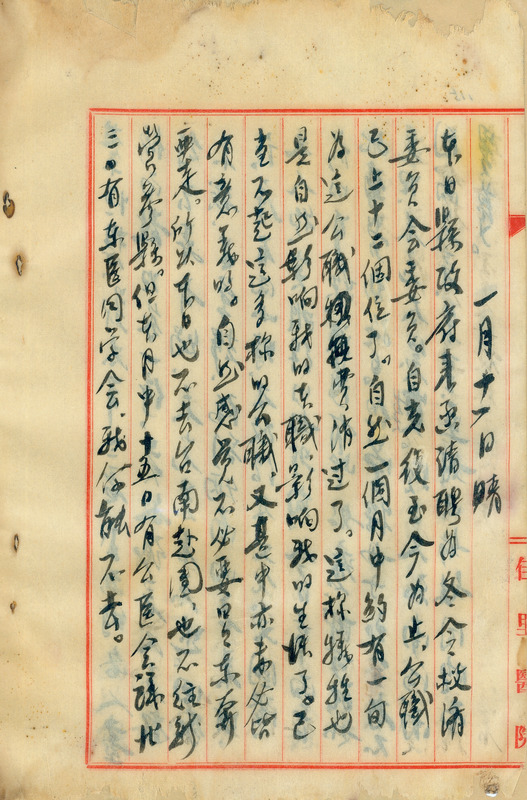 一月十一日 晴
本日縣政府來函請聘為冬令救濟
委員会委員。自光復至今為止、公職
已上十二個位了。自然一個月中約有一旬
為這公職犧牲費消過了。這種犧牲也
是自然影响我的本職、影响我的生活了。已
当不起這多種的公職、又其中亦未必皆
有意義的。自然感覚不必要日日東奔
西走。所以本日也不去台南赴園、也不往新
營參縣。但本月中十五日有公医会議 廿
三日有東医同学会、我你能不去。
佳里醫院